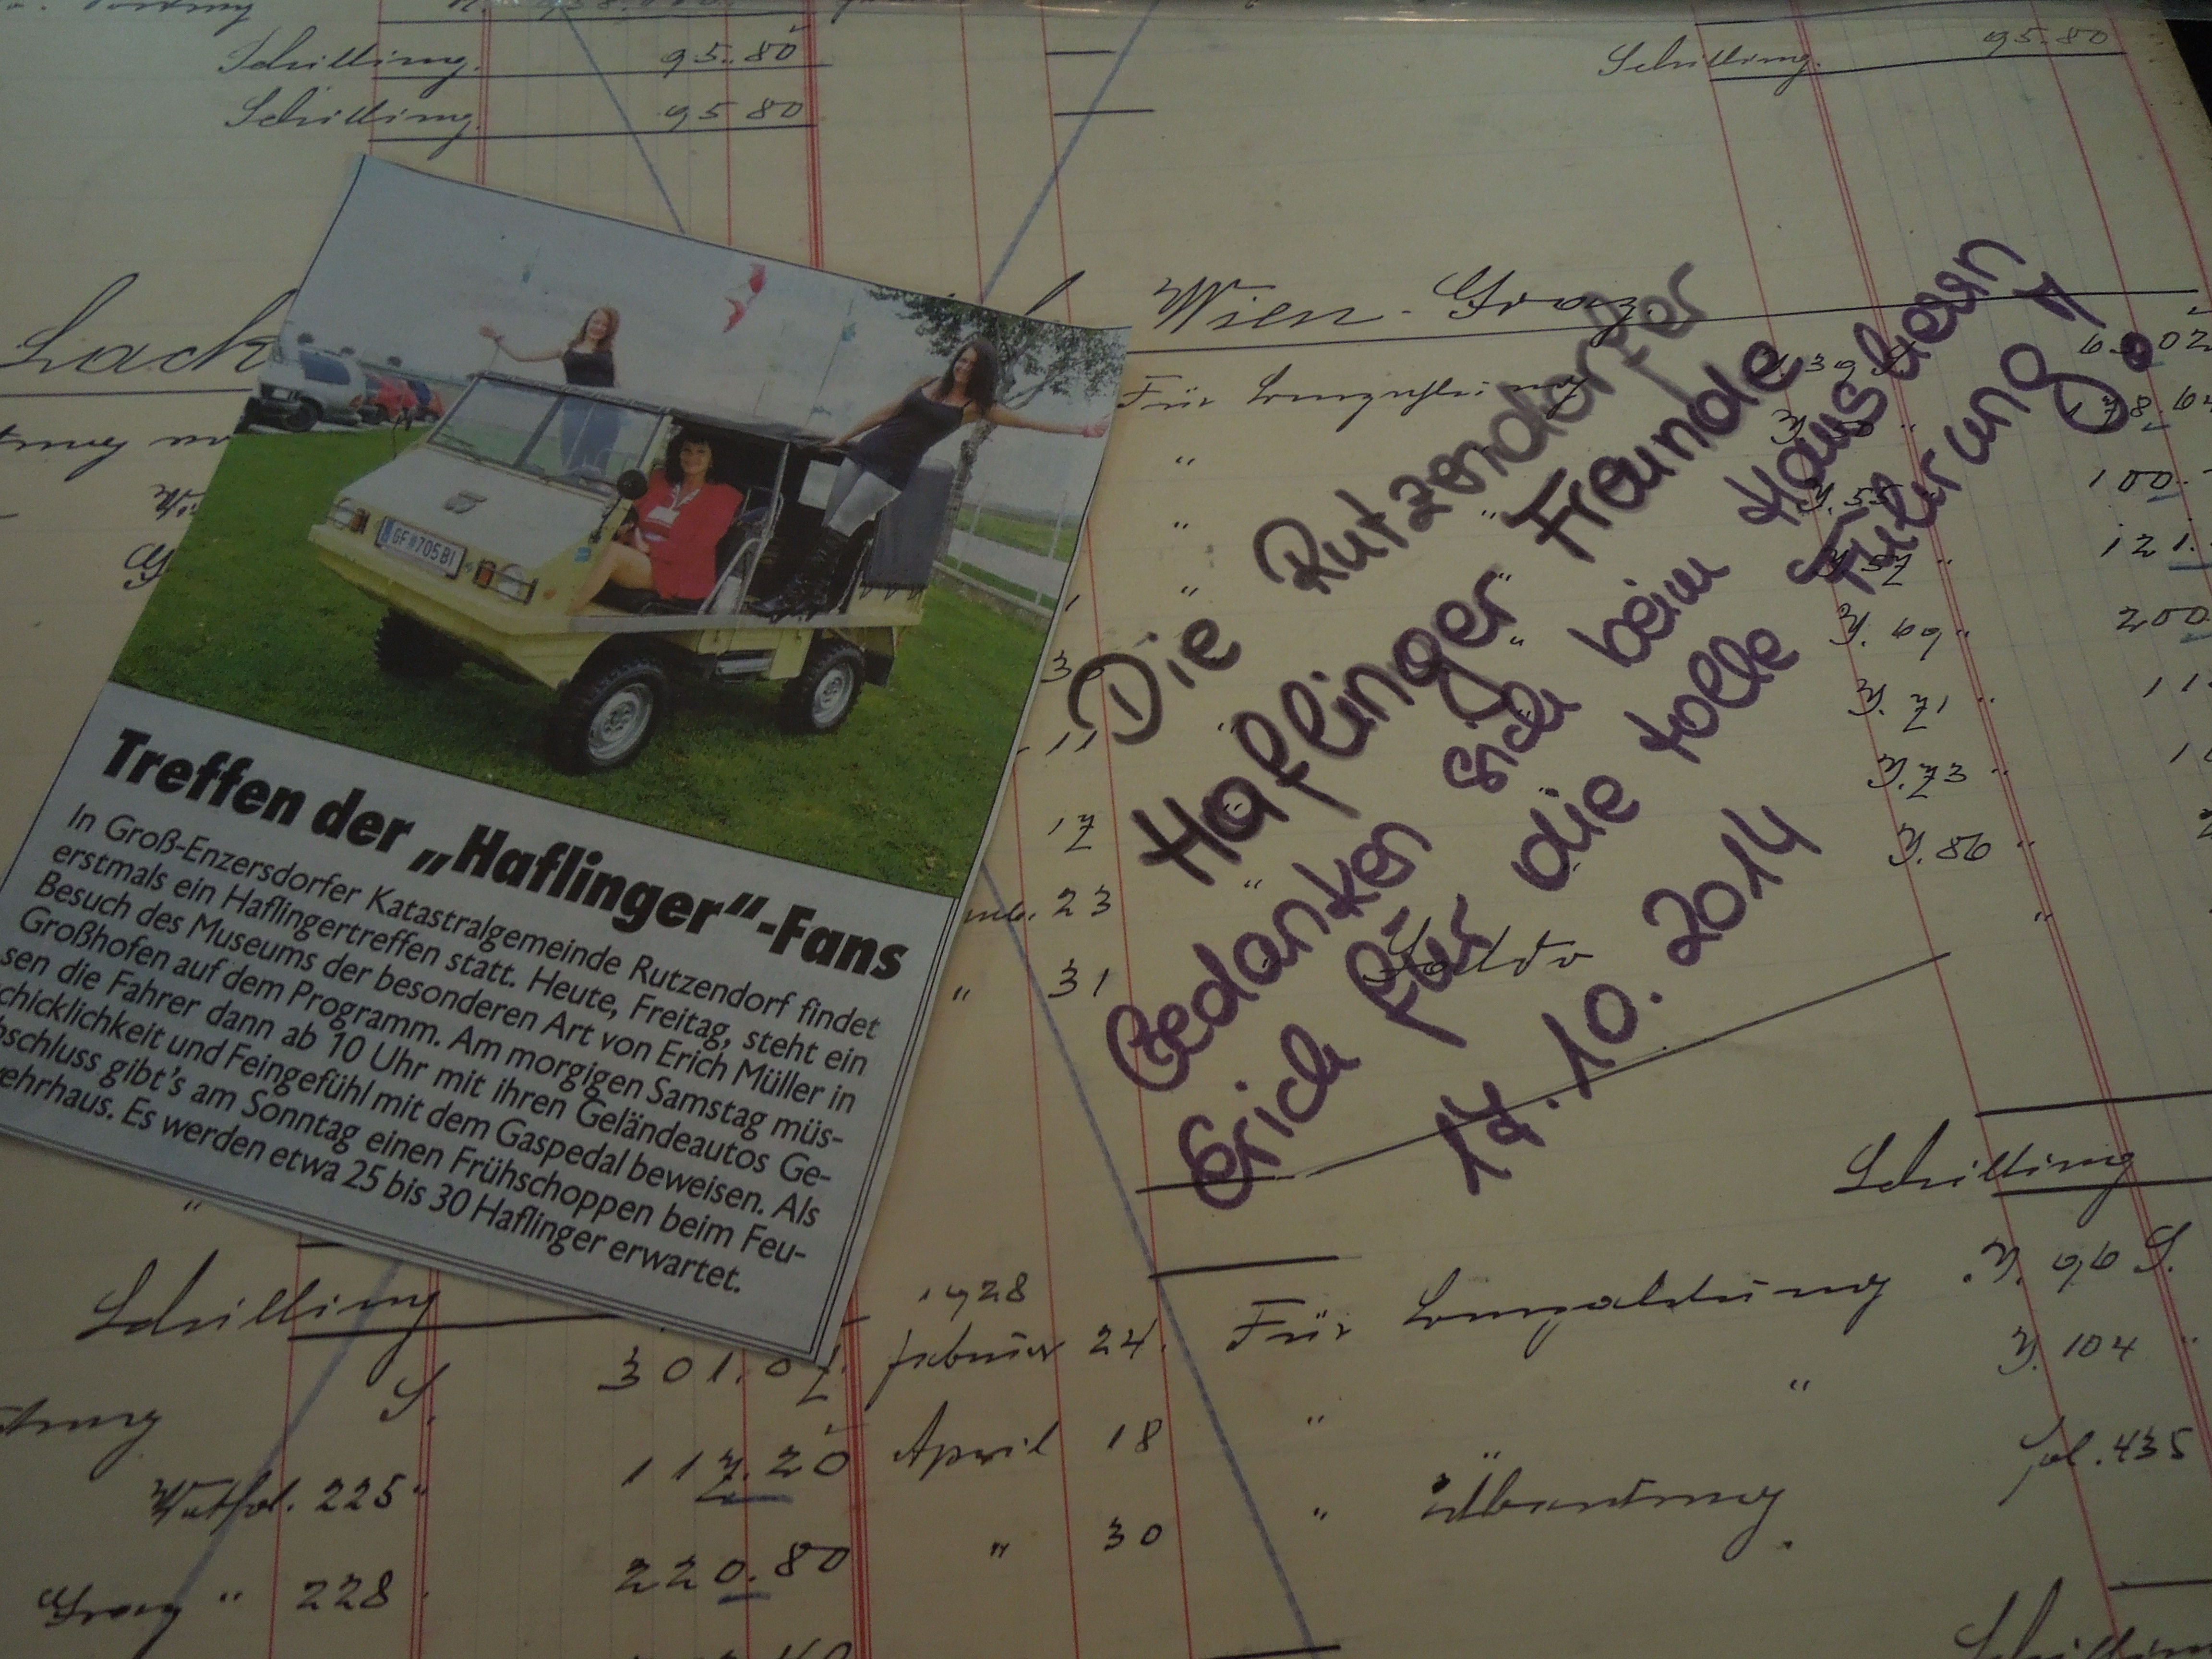 Schilling. 95.80
Schilling. 95.80
Schilling 95 80
Lack
Wien - Graz.
Die Rutzendorfer
Haflinger Freunde
Bedanken sich beim Hausherrn
Erich für die tolle Führung!
17.10.2014
Für
100.
121.
200
Y. 55 "
Y. 57 "
Y. 69 "
Y. 71 "
Y. 73 "
Y. 86 "
11
17
23
" 31
Saldo
GF 705 BI
Treffen der „Haflinger“-Fans
In Groß-Enzersdorfer Katastralgemeinde Rutzendorf findet
erstmals ein Haflingertreffen statt. Heute, Freitag, steht ein
Besuch des Museums der besonderen Art von Erich Müller in
Großhofen auf dem Programm. Am morgigen Samstag müs-
sen die Fahrer dann ab 10 Uhr mit ihren Geländeautos Ge-
chicklichkeit und Feingefühl mit dem Gaspedal beweisen. Als
bschluss gibt's am Sonntag einen Frühschoppen beim Feu-
ehrhaus. Es werden etwa 25 bis 30 Haflinger erwartet.
Schilling
Schilling
1928
S. 301.07. Februar 24. Für Y. 96 S.
225 " 117.20 April 18 " " Y. 104 "
" 228 220.80 " 30 " fol. 435
Schilling